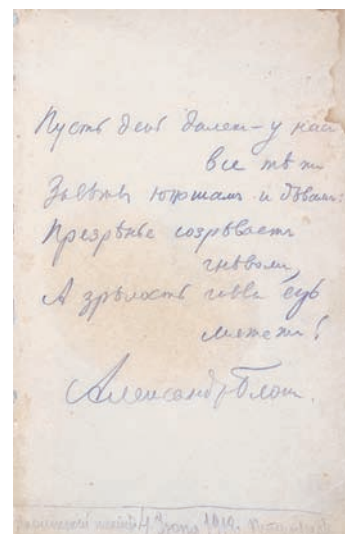 Пусть день далек – у нас
все тѣ ж
Завѣты юношамъ и дѣвамъ:
Презрѣнье созрѣваетъ
гнѣвомъ,
А зрѣлость гнѣва есть
мятежъ!
Александръ Блокъ.
1919.